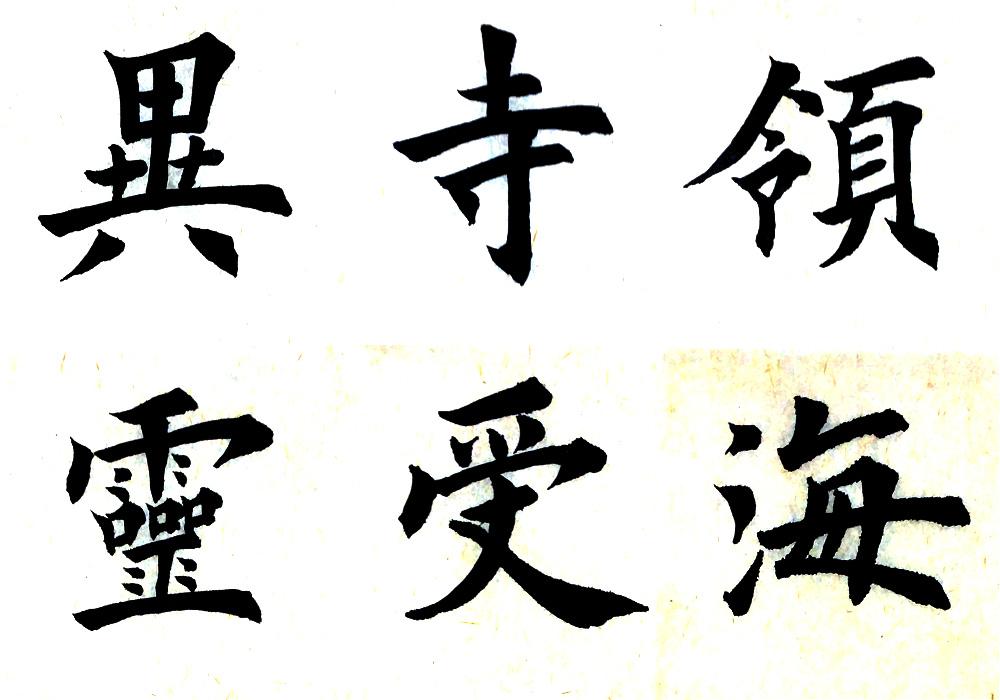 異寺領
靈受海